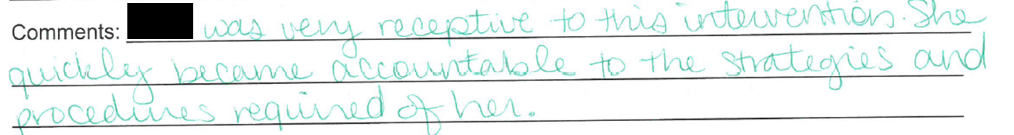 Comments: was very receptive to this intervention. She
quickly became accountable to the strategies and
procedures required of her.